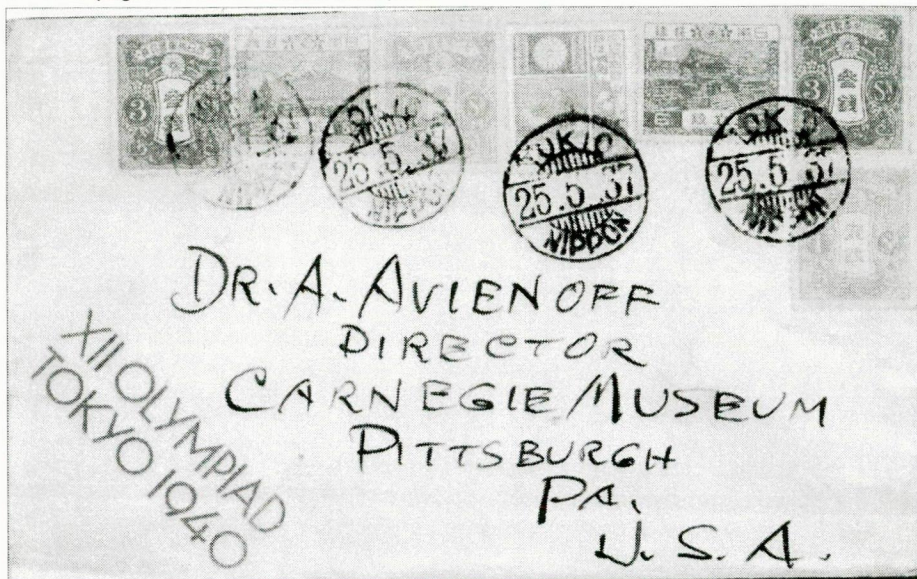 3 参銭
3 参銭
25.5.37
TOKIO
25.5.37
NIPPON
25.5.37
DR. A. AVIENOFF
DIRECTOR
CARNEGIE MUSEUM
PITTSBURGH
PA.
U.S.A.
XII OLYMPIAD
TOKYO 1940